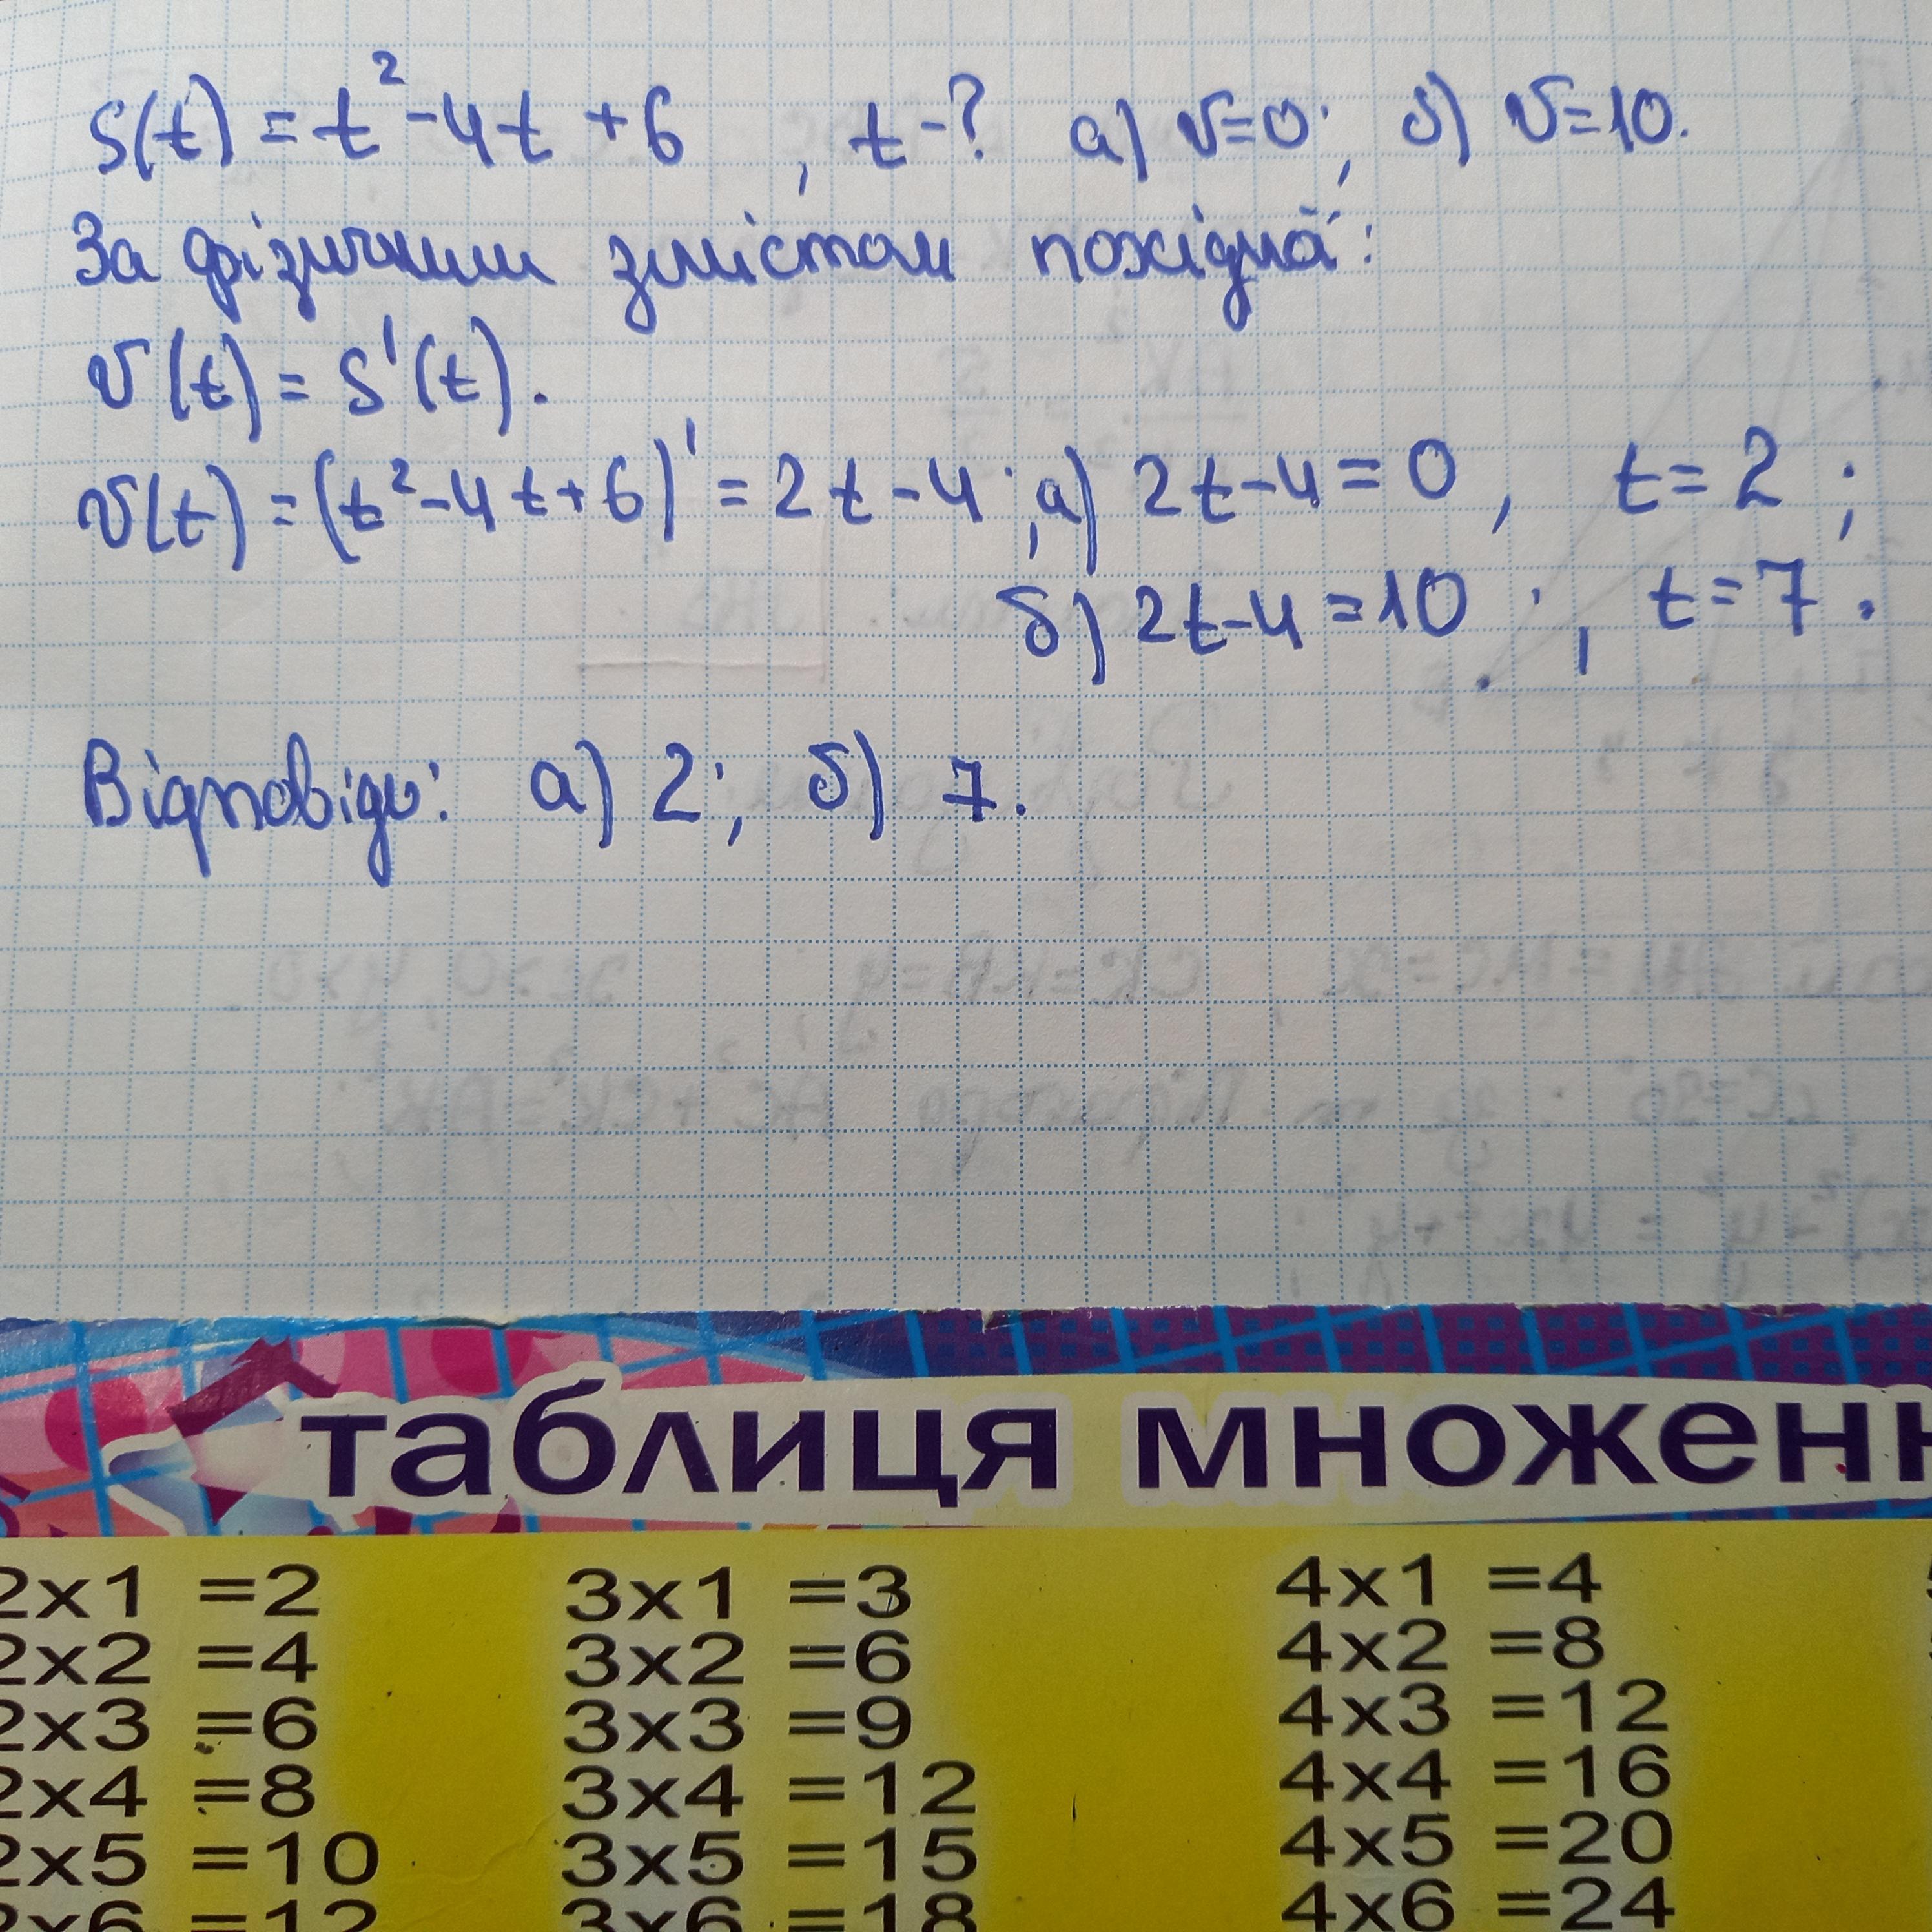 S(t) = t² - 4t + 6 , t - ? а) v=0; б) v=10.
За фізичним змістом похідної:
v(t) = S'(t).
v(t) = (t² - 4t + 6)' = 2t - 4; а) 2t - 4 = 0, t = 2;
б) 2t - 4 = 10; t = 7.
Відповідь: а) 2; б) 7.
таблиця множен
2x1 =2 3x1 =3 4x1 =4
2x2 =4 3x2 =6 4x2 =8
2x3 =6 3x3 =9 4x3 =12
2x4 =8 3x4 =12 4x4 =16
2x5 =10 3x5 =15 4x5 =20
2x6 =12 3x6 =18 4x6 =24